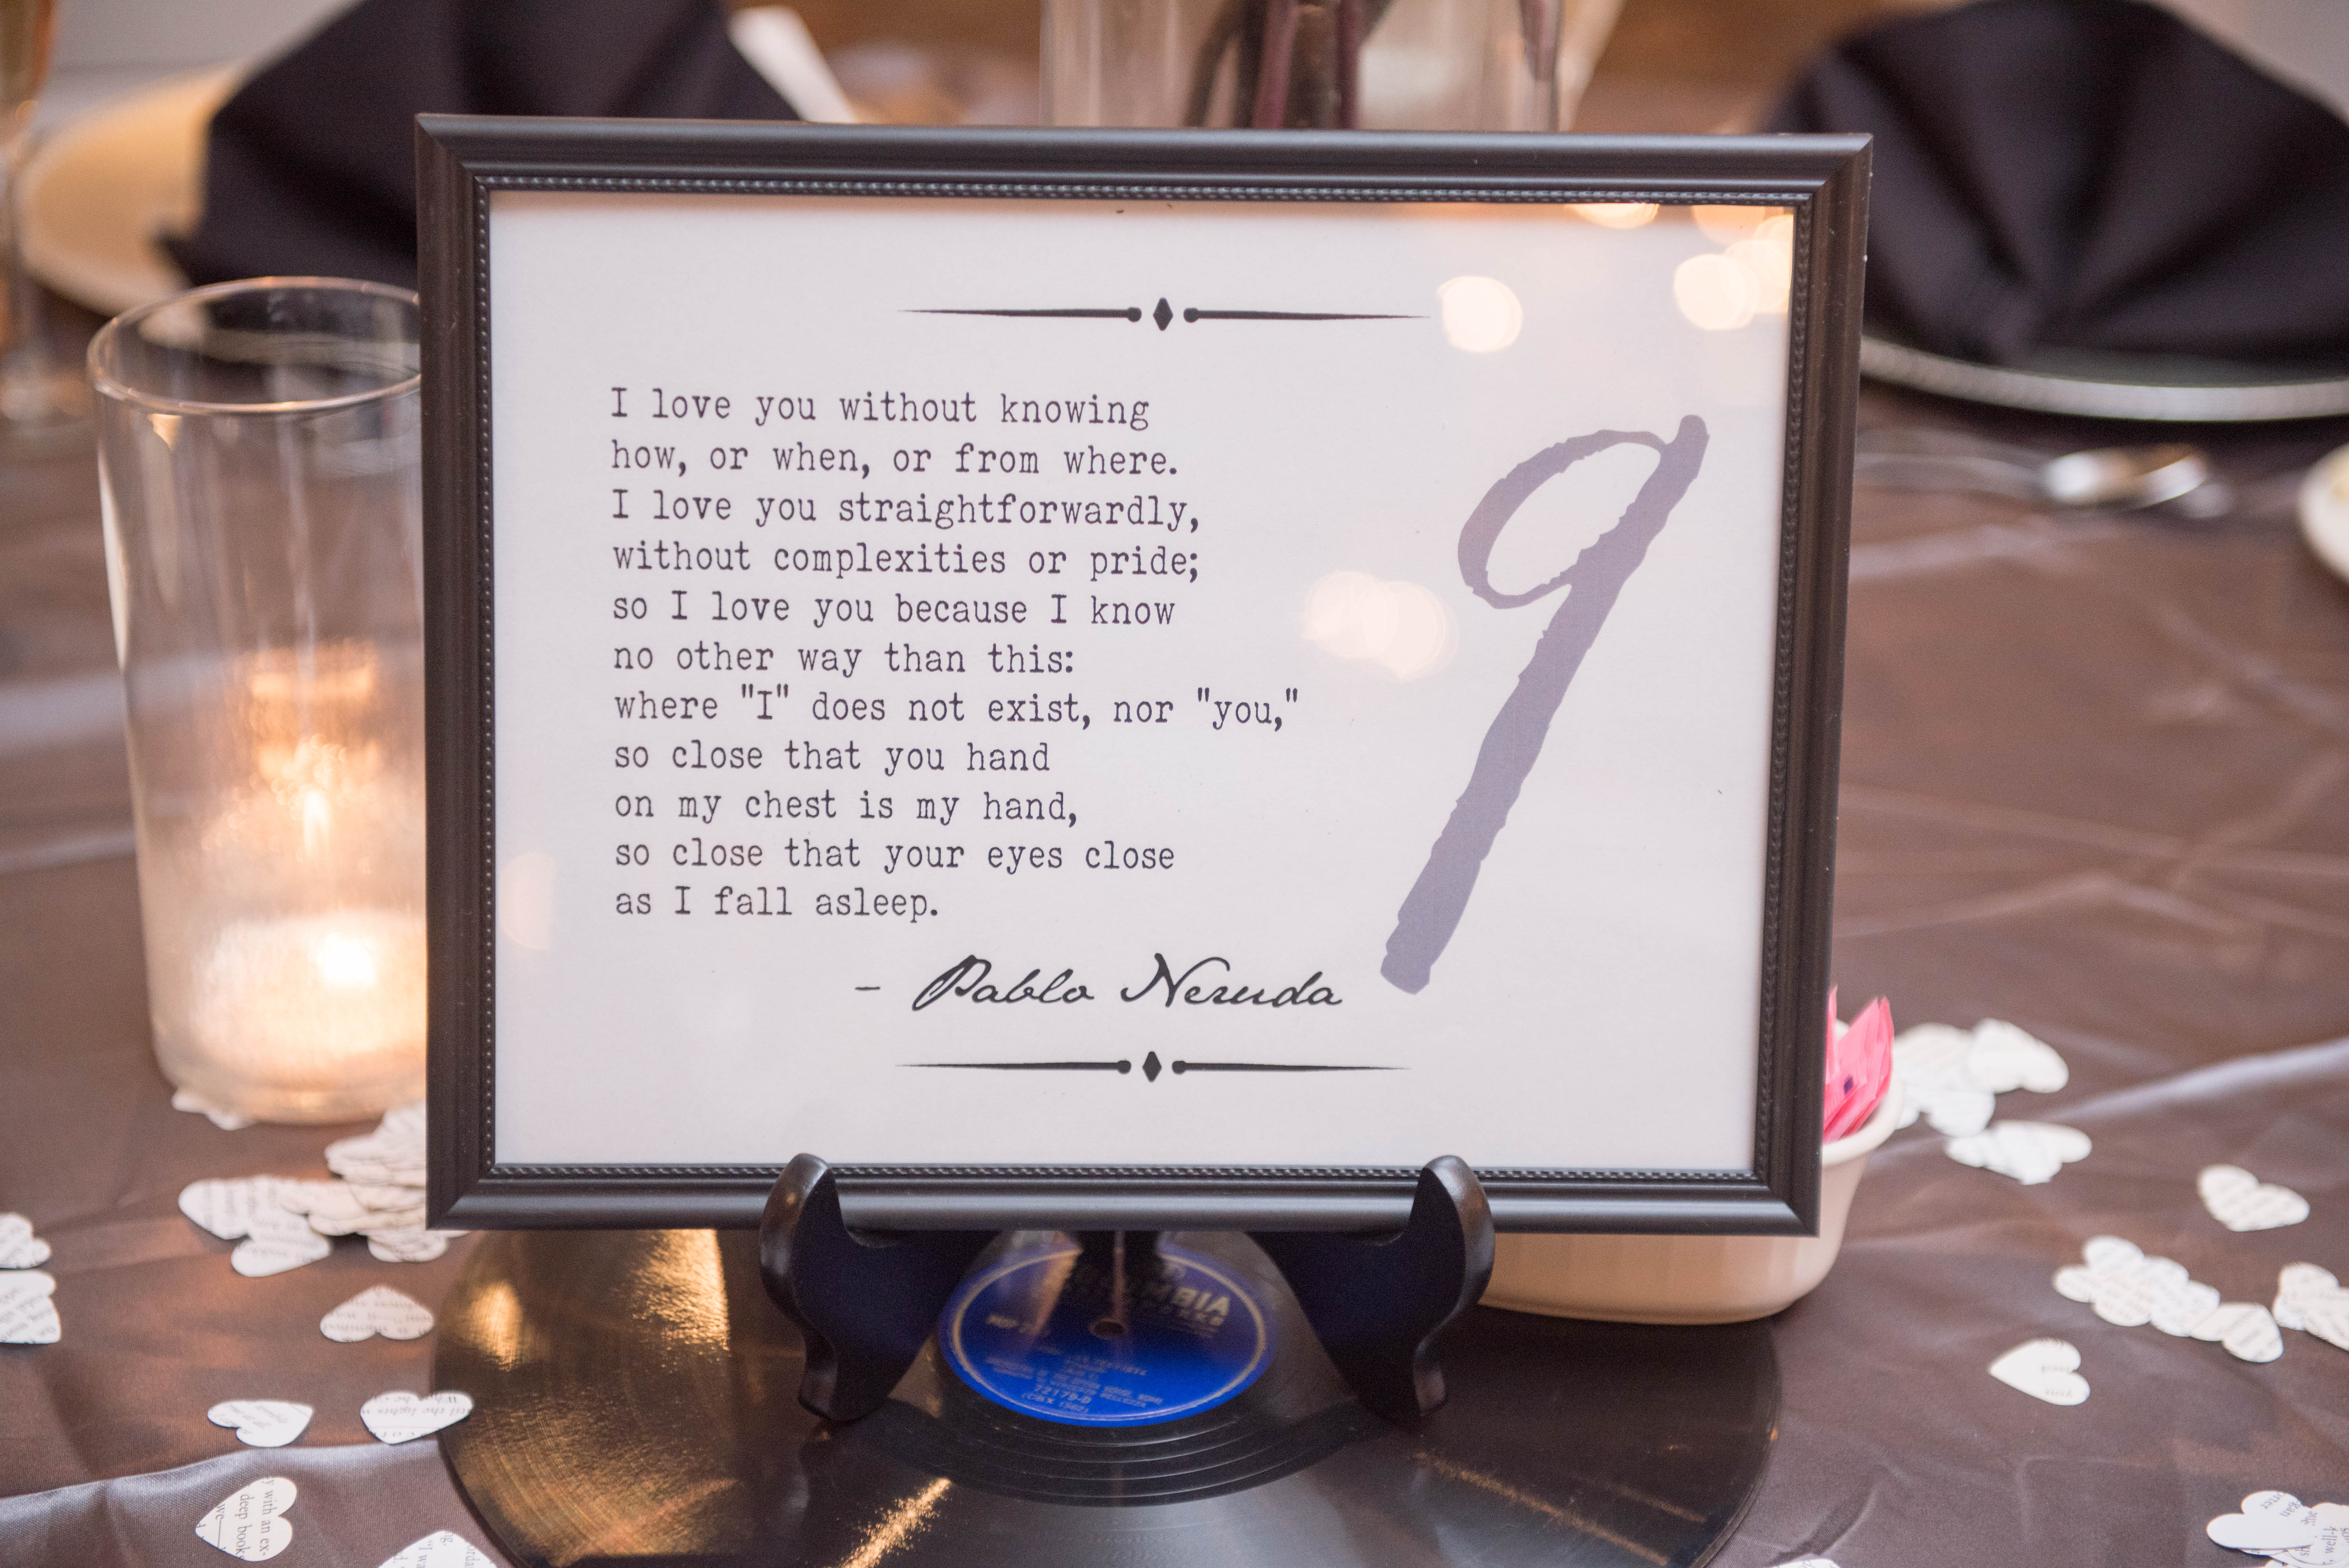 I love you without knowing
how, or when, or from where.
I love you straightforwardly,
without complexities or pride;
so I love you because I know
no other way than this:
where "I" does not exist, nor "you,"
so close that you hand
on my chest is my hand,
so close that your eyes close
as I fall asleep.
- Pablo Neruda
9
72179-D
with an ex-
deep book
we